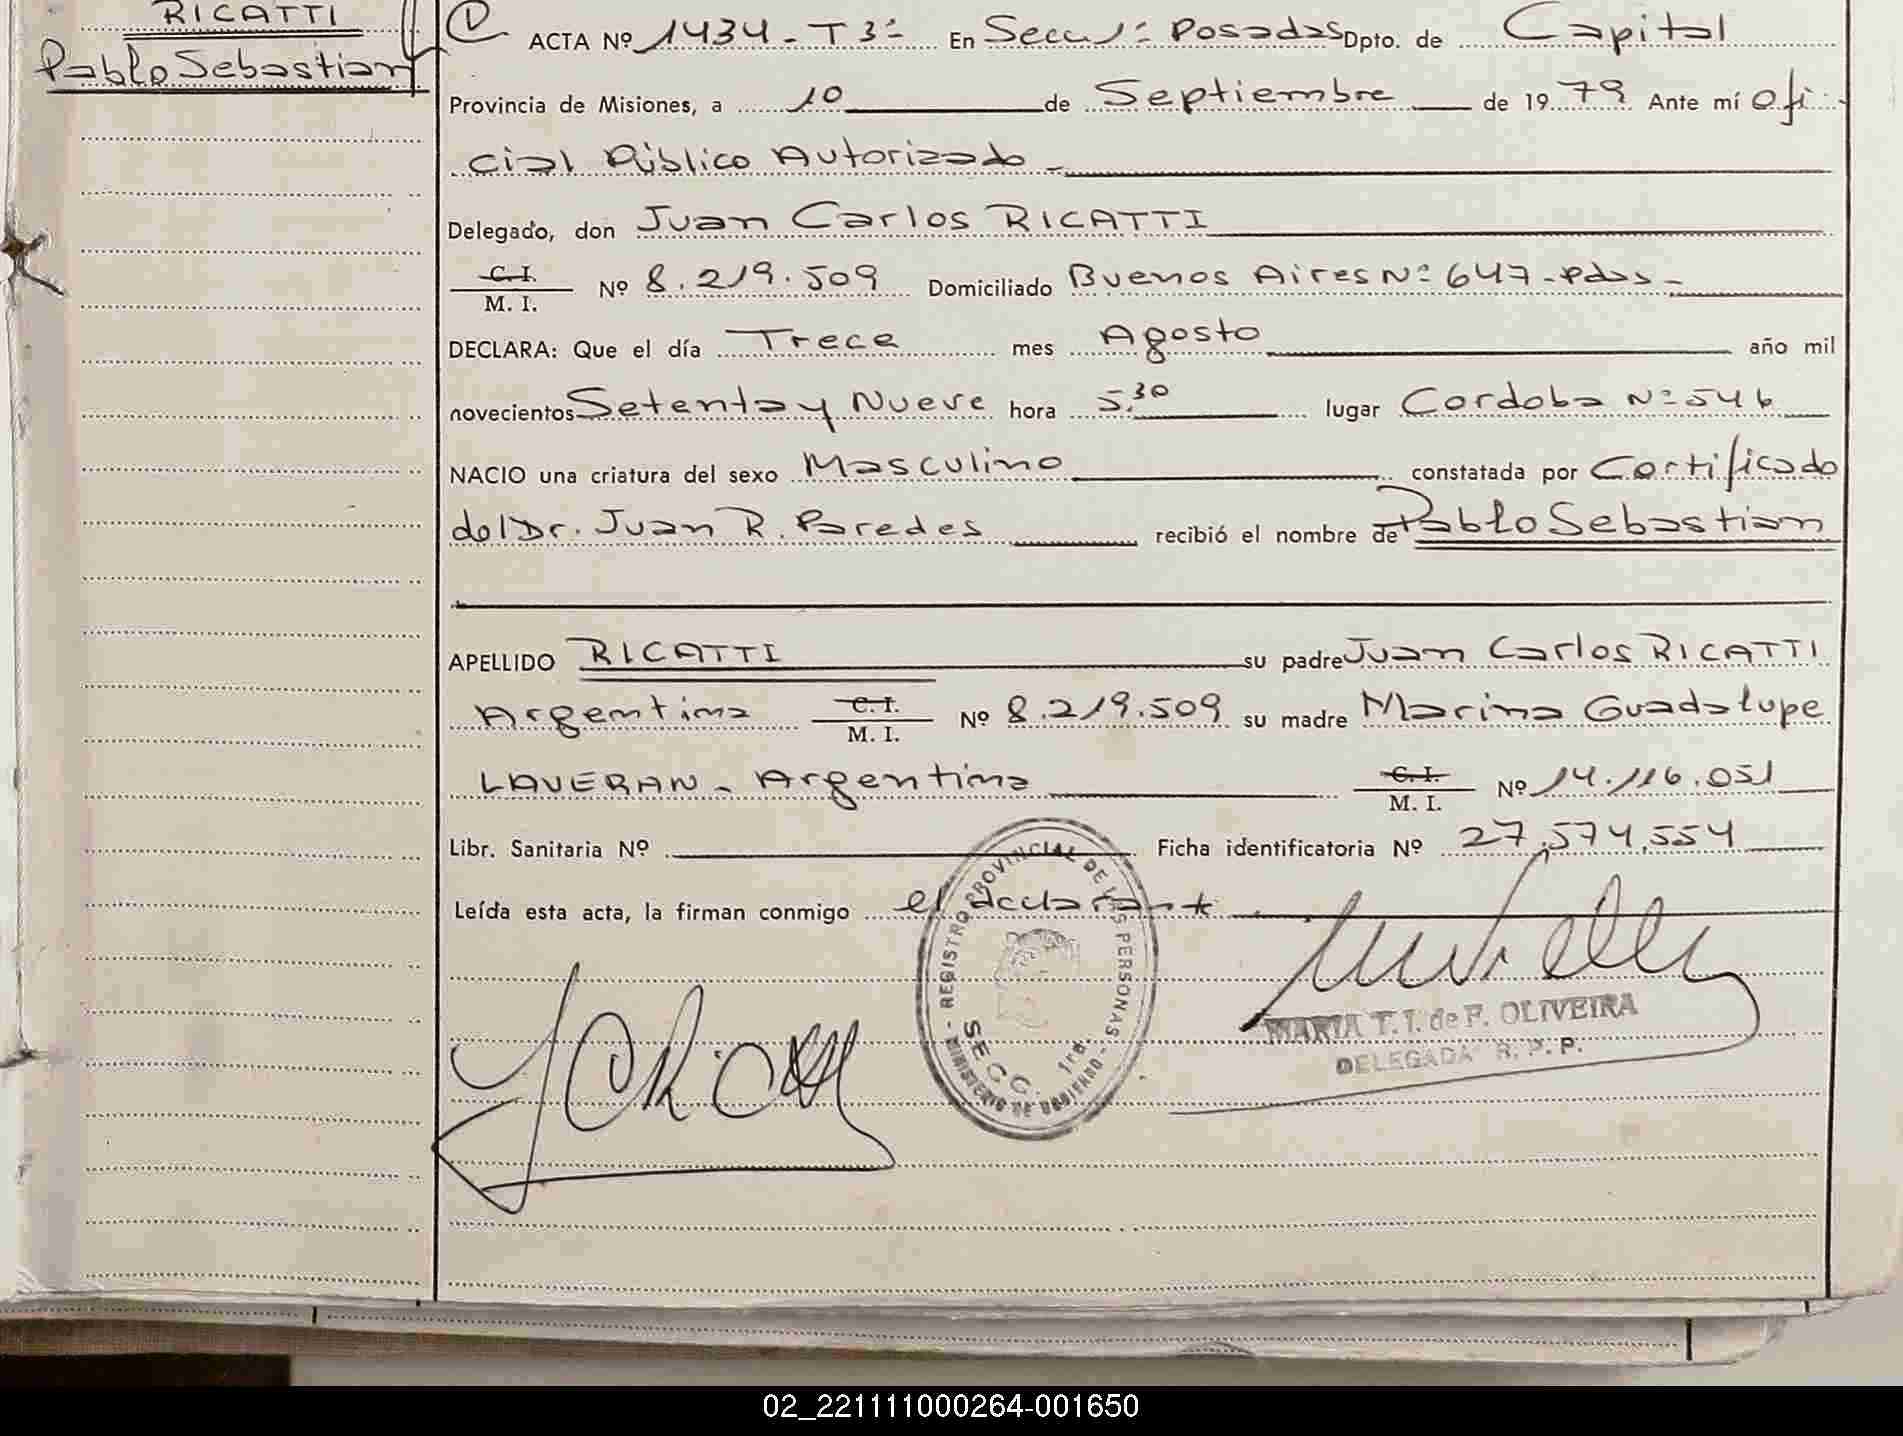 RICATTI
Pablo Sebastian
ACTA Nº 1434 - T3º En Secc 1ª Posadas Dpto. de Capital
Provincia de Misiones, a 10 de Septiembre de 1979 Ante mí Ofi
cial Público Autorizado
Delegado, don Juan Carlos RICATTI
C. I.
M. I. Nº 8.219.509 Domiciliado Buenos Aires Nº 647 - Pdas -
DECLARA: Que el día Trece mes Agosto año mil
novecientos Setenta y Nueve hora 5,30 lugar Cordoba Nº 546
NACIO una criatura del sexo Masculino constatada por Certificado
del Dr. Juan R. Paredes recibió el nombre de Pablo Sebastian
APELLIDO RICATTI su padre Juan Carlos RICATTI
Argentina C. I. M. I. Nº 8.219.509 su madre Marina Guadalupe
LAVERAN - Argentina C. I. M. I. Nº 14.116.051
Libr. Sanitaria Nº Ficha identificatoria Nº 27,574,554
Leída esta acta, la firman conmigo el declarante
REGISTRO PROVINCIAL DE LAS PERSONAS
SECC. 1ra.
MINISTERIO DE GOBIERNO
MARIA T. I. de F. OLIVEIRA
DELEGADA R. P. P.
02_221111000264-001650